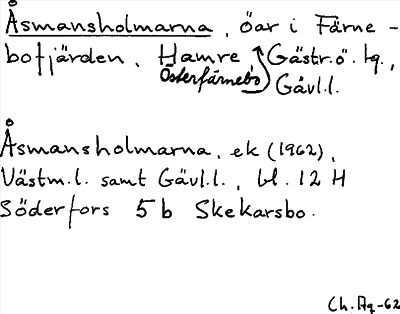 Åsmansholmarna, öar i Färne-
bofjärden, Hamre, Gästr.ö. tg.,
Österfärnebo Gävl.l.
Åsmansholmarna, ek (1962),
Västm.l. samt Gävl.l., bl. 12 H
Söderfors 5 b Skekarsbo.
Ch.Aq-62